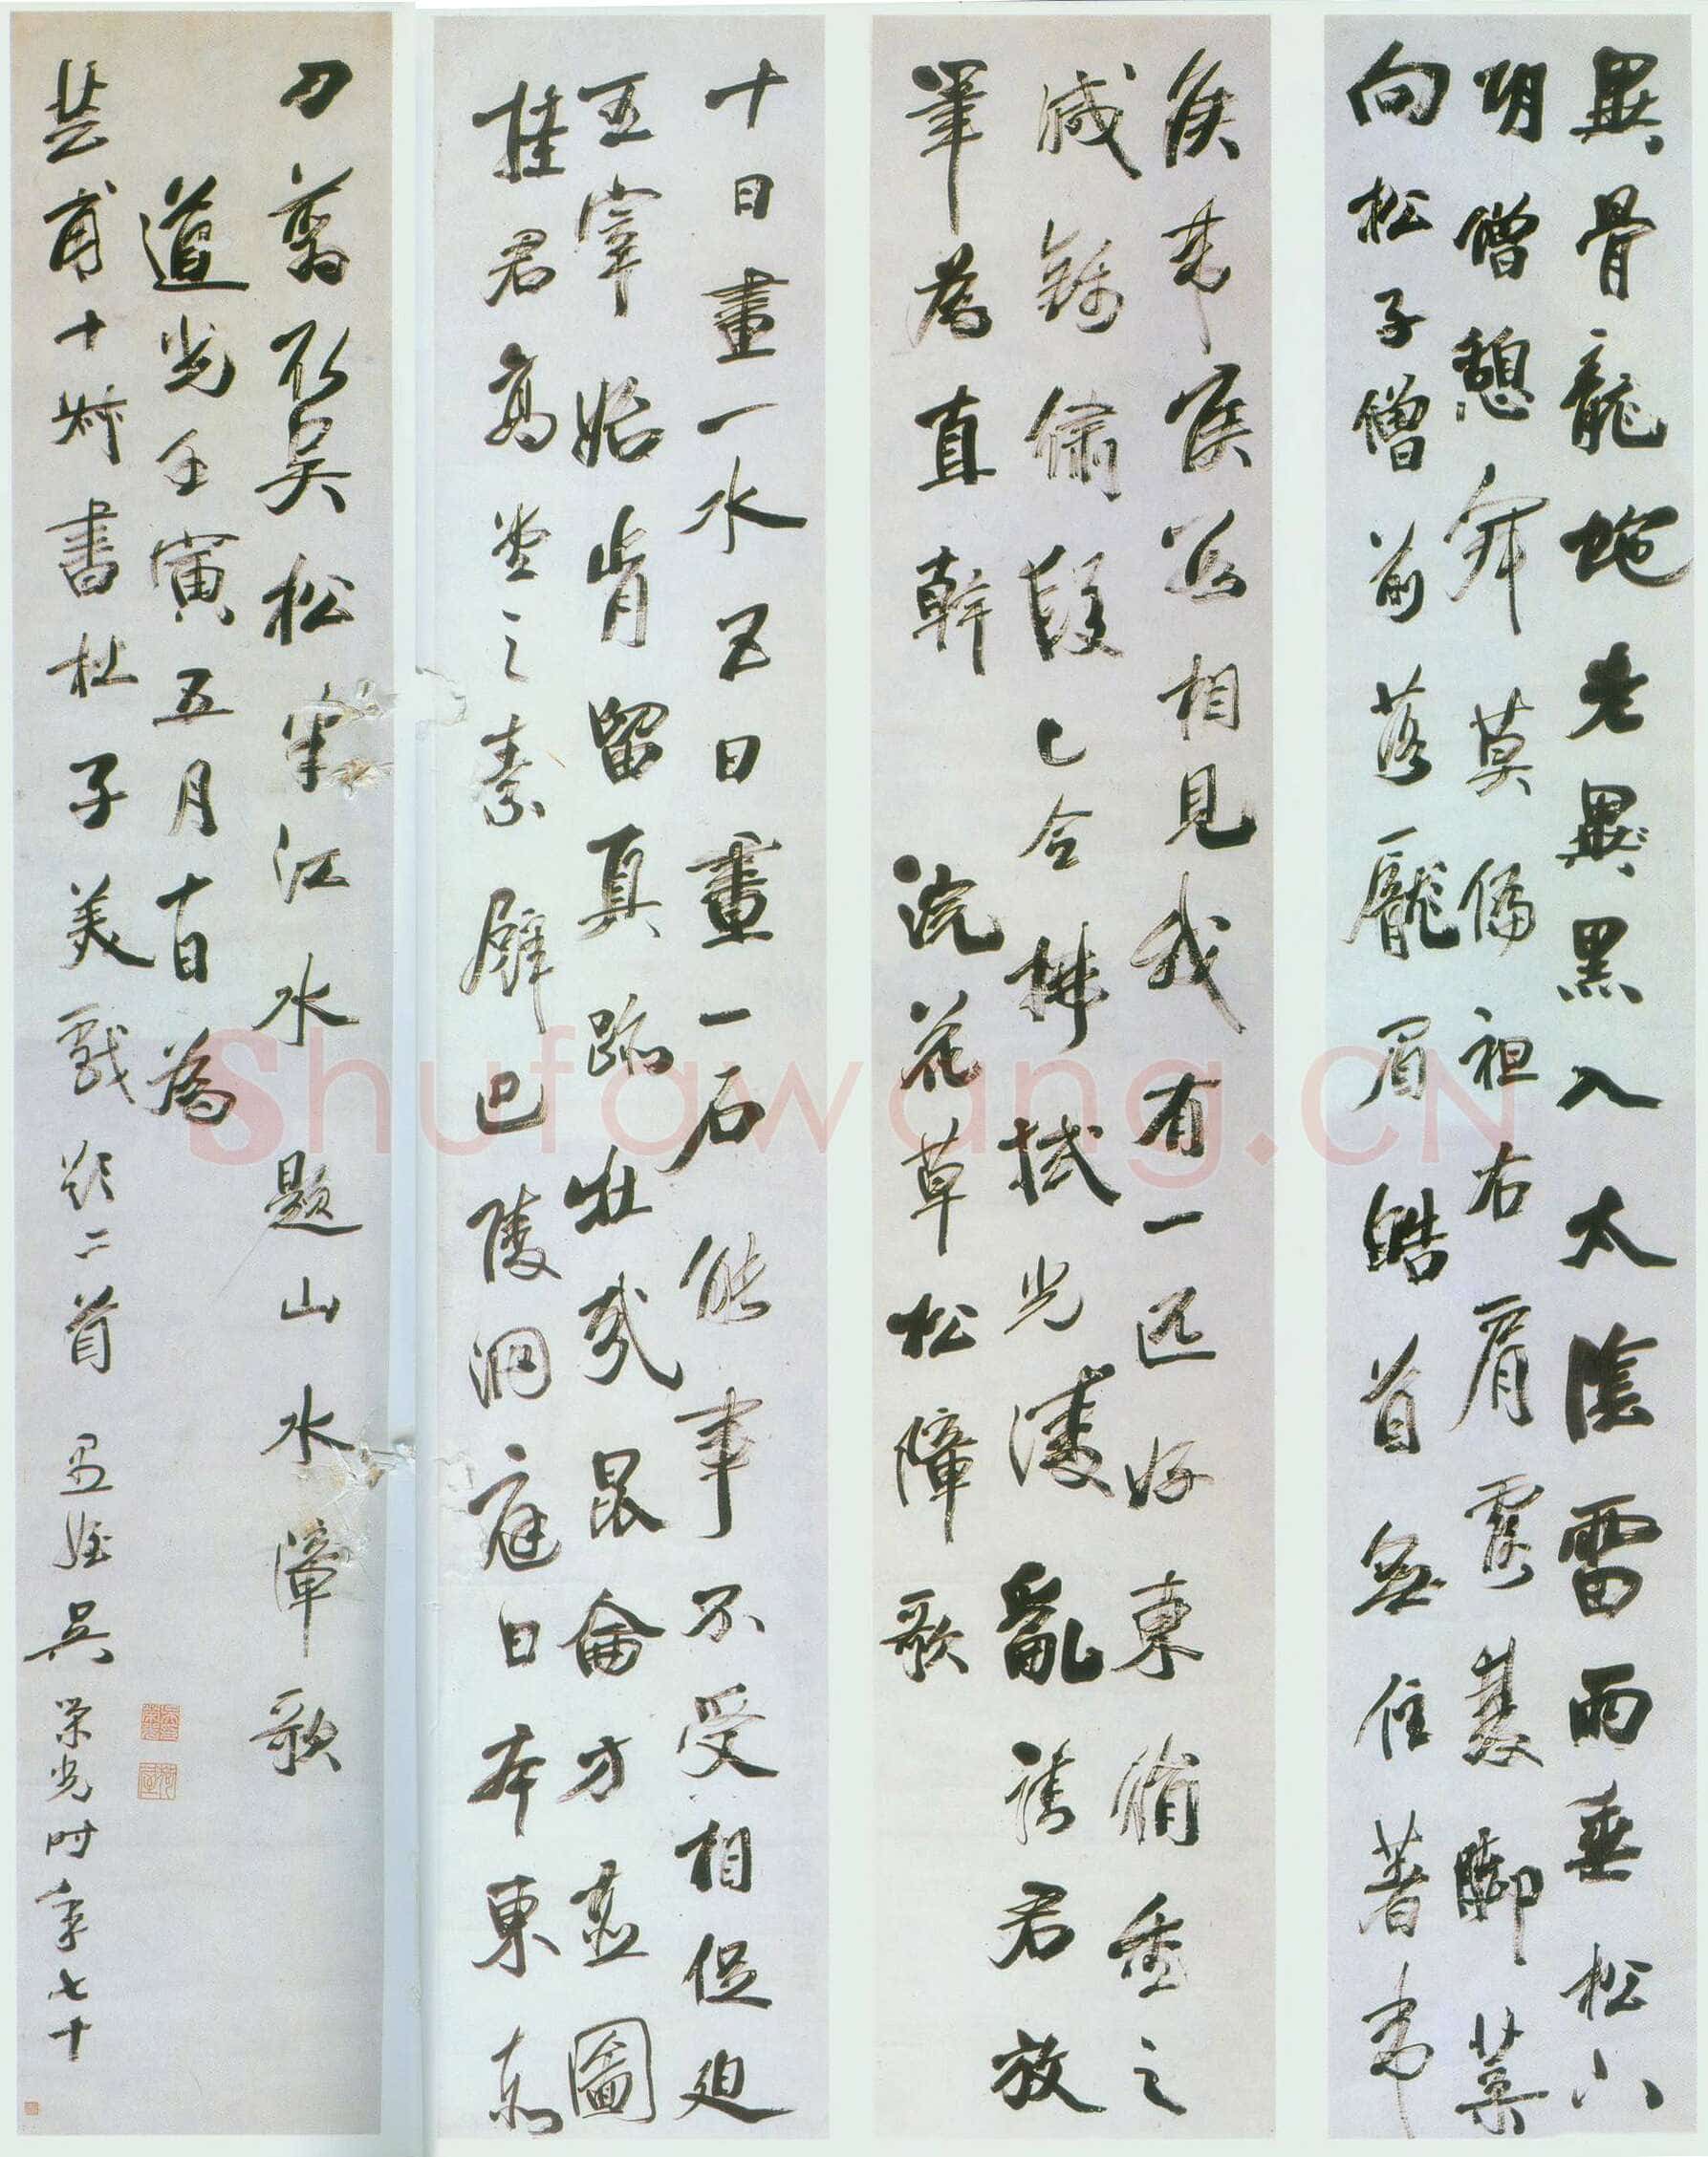 骨龍虵老黑入太陰雷雨垂松
胡僧憩寂莫偏袒右肩露雙脚葉
向松子僧前落龎眉皓首無住著韋
侯韋侯數相見我有一匹好東絹重之
減錦繡段已令拂拭光凌亂請君放
筆為直幹 浣花草松障歌
十日畫一水五日畫一石能事不受相促迫
王宰始肯留真跡壯哉昆侖方壺圖
挂君高堂之素壁巴陵洞庭日本東
刀翦取吳松半江水 題山水障歌
道光壬寅五月十日為
芸甫十叔書杜子美戲題二首 愚姪吳榮光時年七十
Shufawang.CN